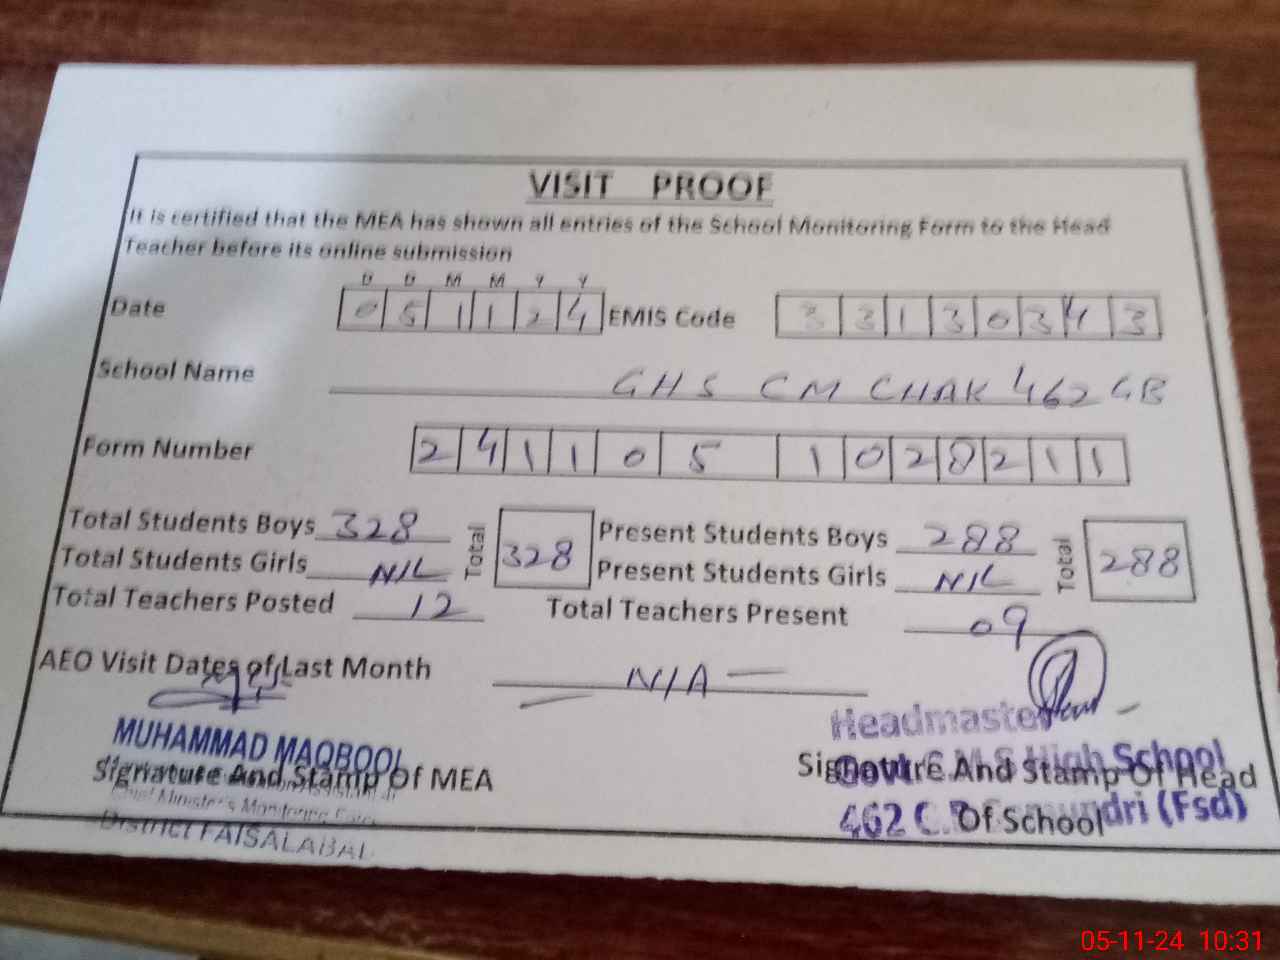 VISIT PROOF
It is certified that the MEA has shown all entries of the School Monitoring Form to the Head
Teacher before its online submission
D D M M Y Y
Date 0 5 1 1 2 4 EMIS Code 3 3 1 3 0 3 4 3
School Name GHS CM CHAK 462 GB
Form Number 2 4 1 1 0 5 1 0 2 8 2 1 1
Total Students Boys 328 Total 328 Present Students Boys 288 Total 288
Total Students Girls NIL Present Students Girls NIL
Total Teachers Posted 12 Total Teachers Present 09
AEO Visit Dates of Last Month N/A
MUHAMMAD MAQBOOL Headmaster
Signature And Stamp Of MEA Signature And Stamp Of Head
Govt. C.M.S High School
Chief Minister's Monitoring Force
District FAISALABAD
462 Of School (Fsd)
05-11-24 10:31